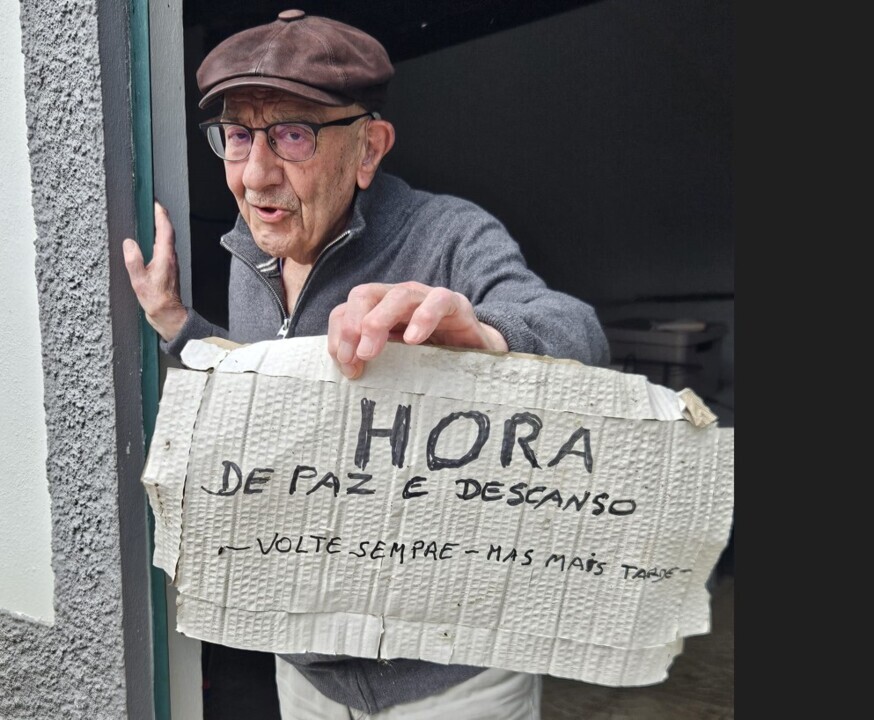 HORA
DE PAZ E DESCANSO
~ VOLTE SEMPRE - MAS MAIS TARDE -